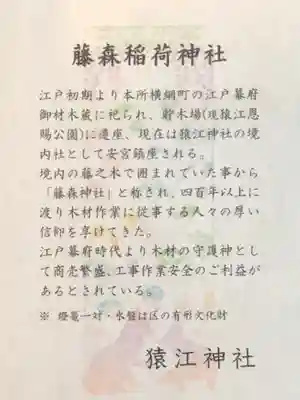 藤森稲荷神社
江戸初期より本所横網町の江戸幕府
御材木蔵に祀られ、貯木場(現猿江恩
賜公園)に遷座、現在は猿江神社の境
内社として安宮鎮座される。
境内の藤之木で囲まれていた事から
「藤森神社」と称され、四百年以上に
渡り木材作業に従事する人々の厚い
信仰を享けてきた。
江戸幕府時代より木材の守護神とし
て商売繁盛、工事作業安全のご利益が
あるとされている。
※ 燈籠一対・水盤は区の有形文化財
猿江神社